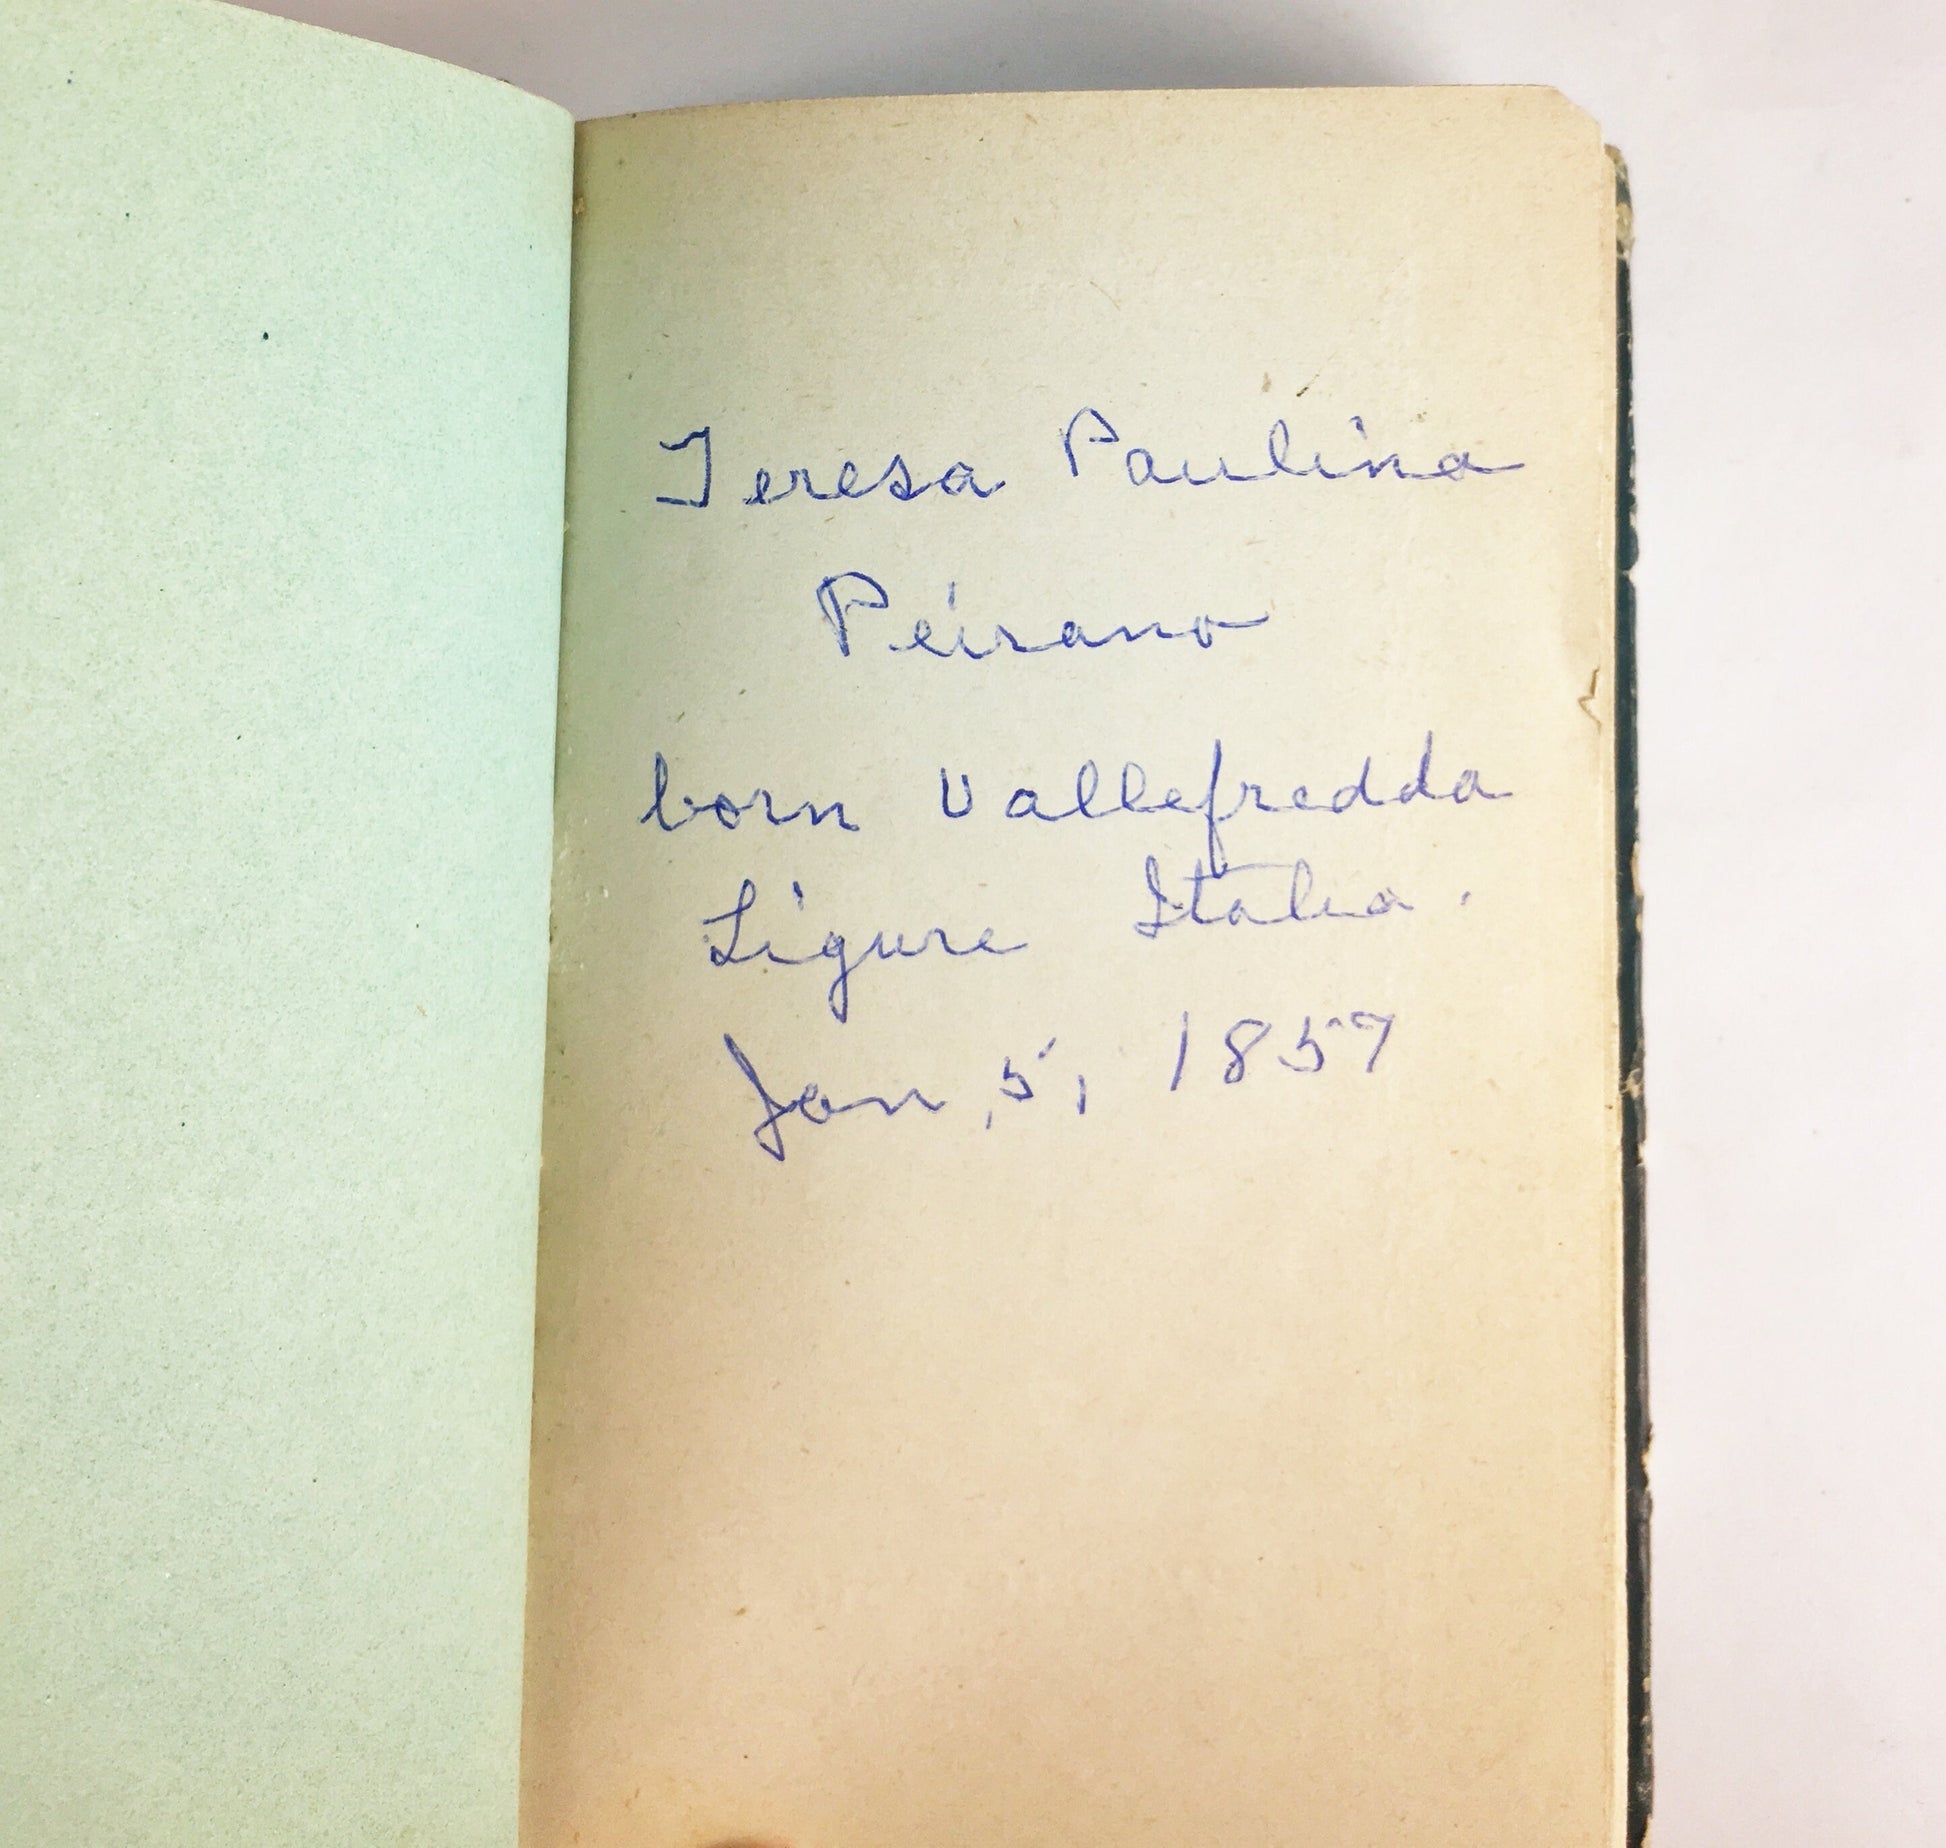 Teresa Paulina
Peirano
born Vallefredda
Ligure Italia.
Jan, 5, 1857